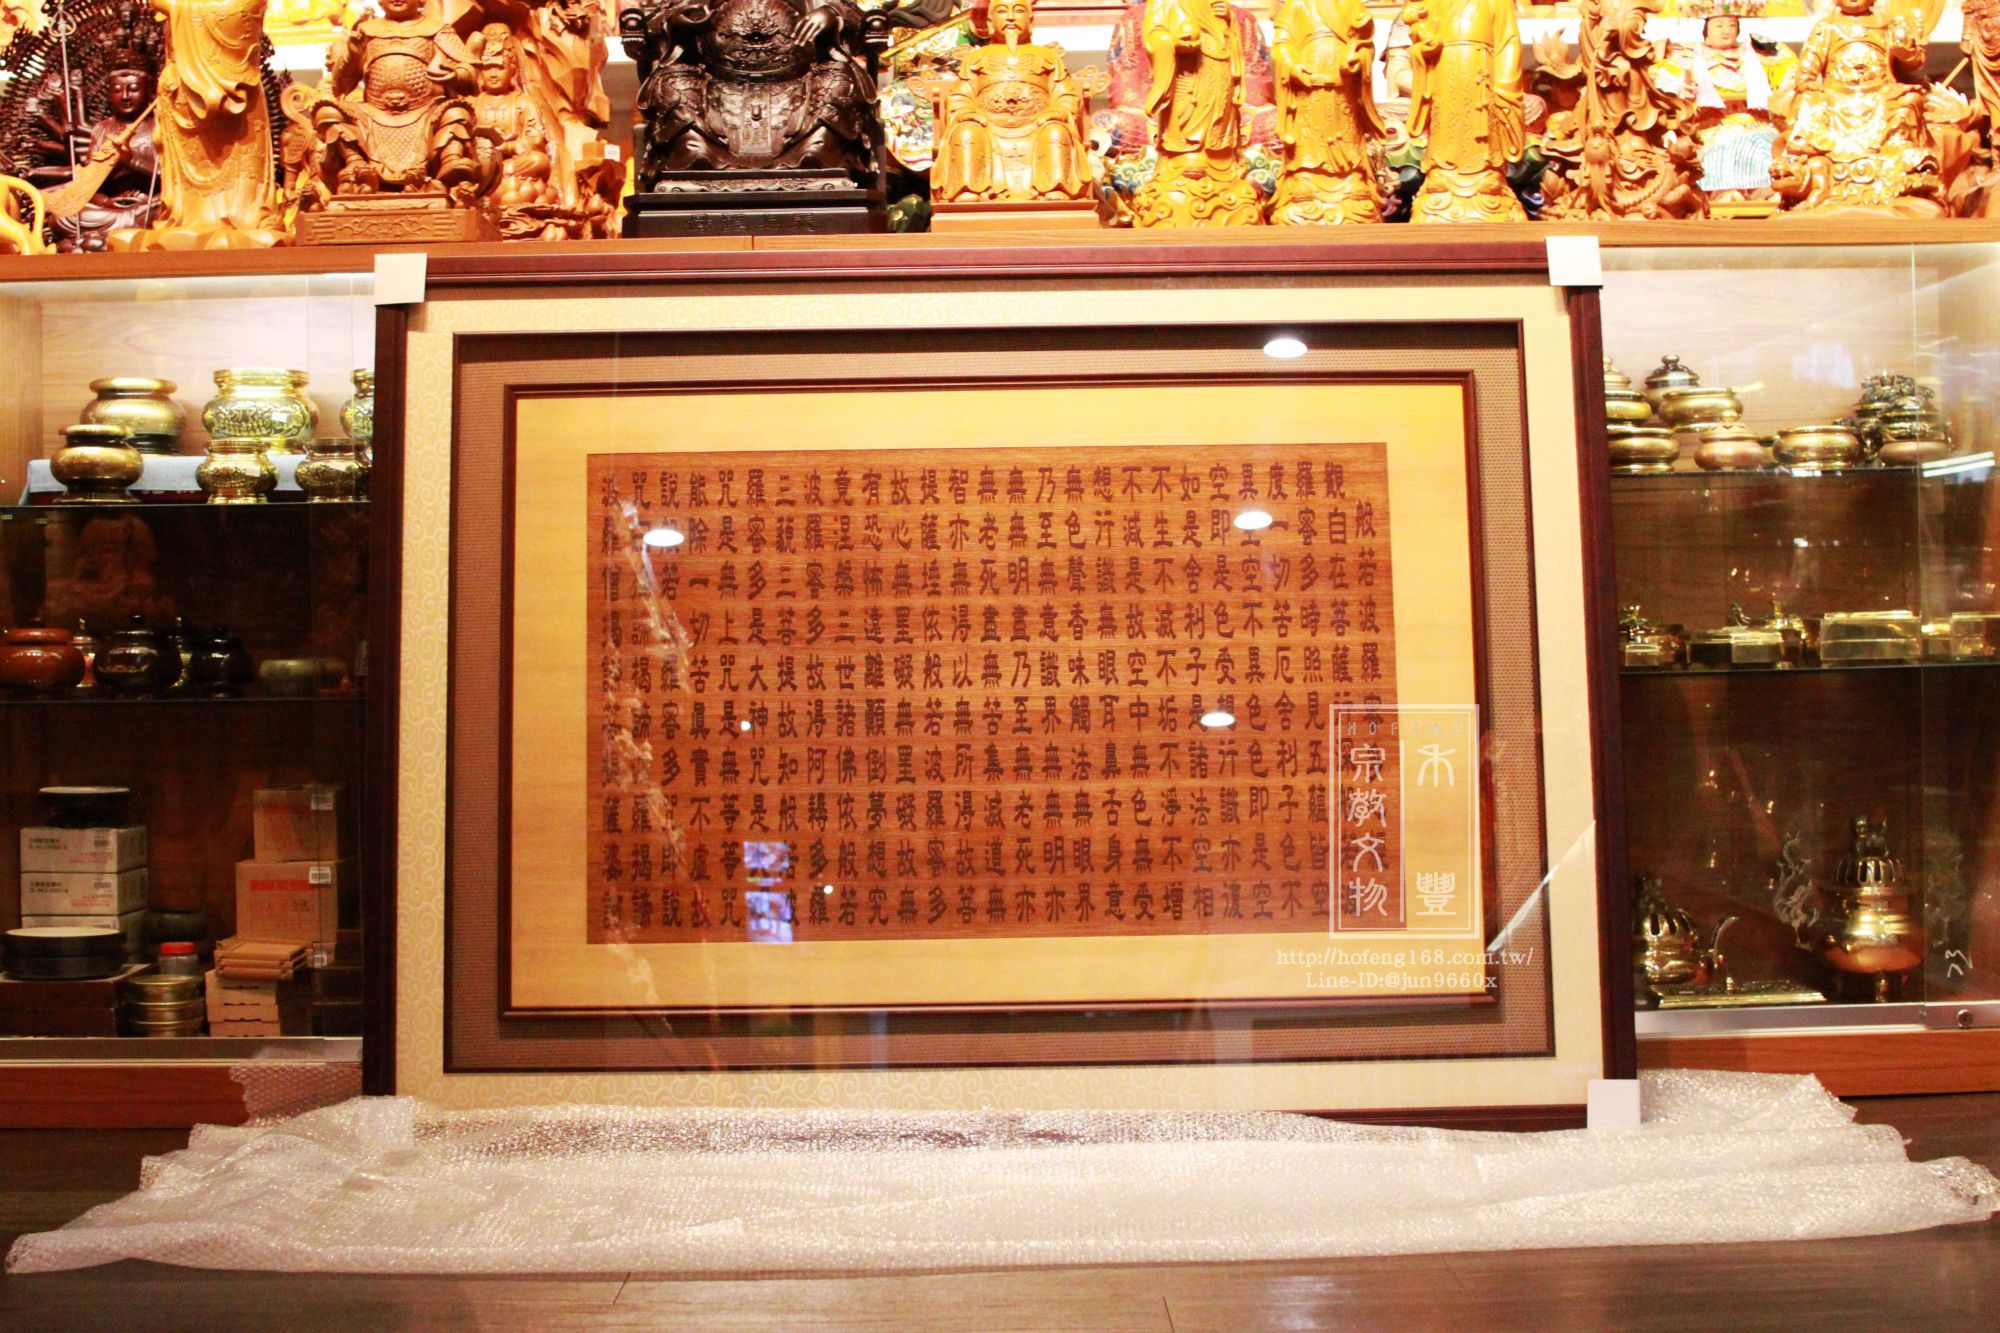 般若波羅蜜
觀自在菩薩
羅蜜多時照見五蘊皆空
度一切苦厄舍利子色不
異空空不異色色即是空
空即是色受想行識亦復
如是舍利子是諸法空相
不生不滅不垢不淨不增
不減是故空中無色無受
想行識無眼耳鼻舌身意
無色聲香味觸法無眼界
乃至無意識界無無明亦
無無明盡乃至無老死亦
無老死盡無苦集滅道無
智亦無得以無所得故菩
提薩埵依般若波羅蜜多
故心無罣礙無罣礙故無
有恐怖遠離顛倒夢想究
竟涅槃三世諸佛依般若
波羅蜜多故得阿耨多羅
三藐三菩提故知般若波
羅蜜多是大神咒是大
咒是無上咒是無等等咒
能除一切苦真實不虛故
說般若波羅蜜多咒即說
咒曰揭諦揭諦波羅揭諦
波羅僧揭諦菩提薩婆訶
HOFENG
禾豐
宗教文物
http://hofeng168.com.tw/
Line-ID:@jun9660x